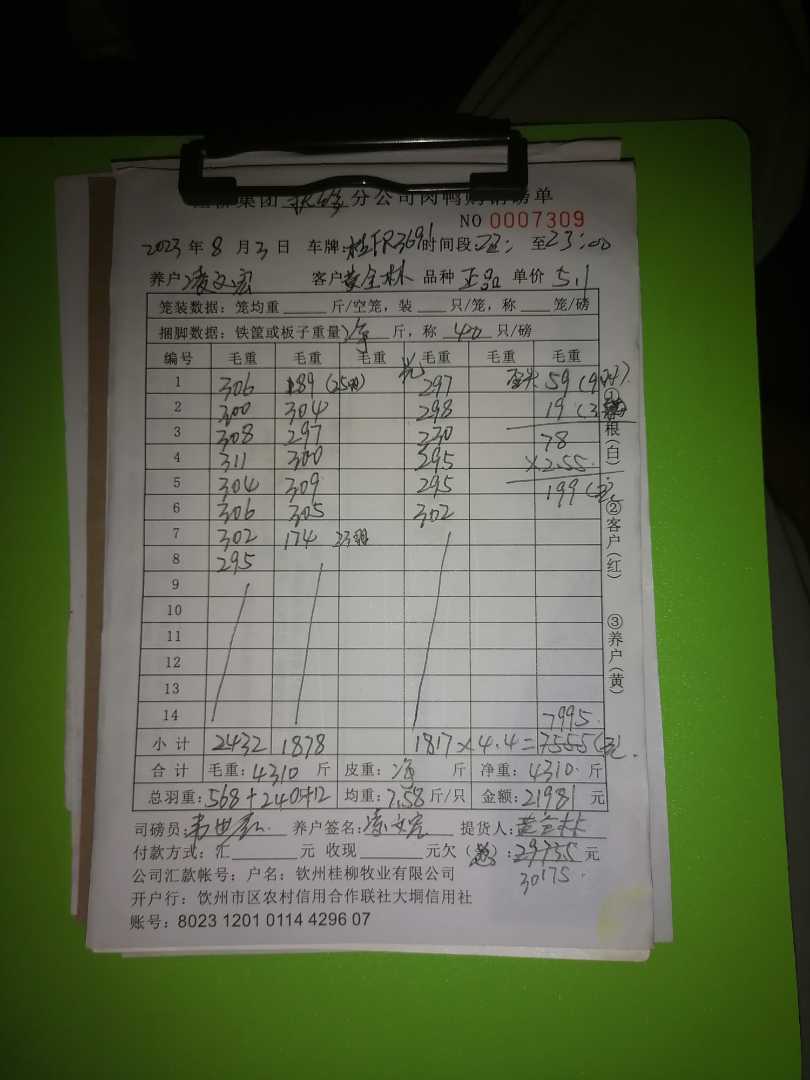 桂柳集团 分公司肉鸭购销磅单
NO 0007309
2023 年 8 月 3 日 车牌: 桂FR3691 时间段 至 23:00
养户 凌文宏 客户 黄全林 品种 正品 单价 5.1
笼装数据: 笼均重 斤/空笼, 装 只/笼, 称 笼/磅
捆脚数据: 铁筐或板子重量 净 斤, 称 40 只/磅
编号 毛重 毛重 毛重 毛重 毛重 毛重
1 306 189 297 59
2 300 304 298 19
3 308 297 230 78
4 311 300 295 ×2.55
5 304 309 295 199
6 306 305 302
7 302 174
8 295
9
10
11
12
13
14 7995
小计 2432 1878 1817×4.4=7555
合计 毛重: 4310 斤 皮重: 净 斤 净重: 4310 斤
总羽重: 568+240+12 均重: 7.58 斤/只 金额: 21981 元
司磅员: 养户签名: 凌文宏 提货人: 黄全林
付款方式: 汇 元 收现 元欠( ): 29735 元
30175
公司汇款帐号: 户名: 钦州桂柳牧业有限公司
开户行: 钦州市区农村信用合作联社大垌信用社
账号: 8023 1201 0114 4296 07
①存根(白)
②客户(红)
③养户(黄)